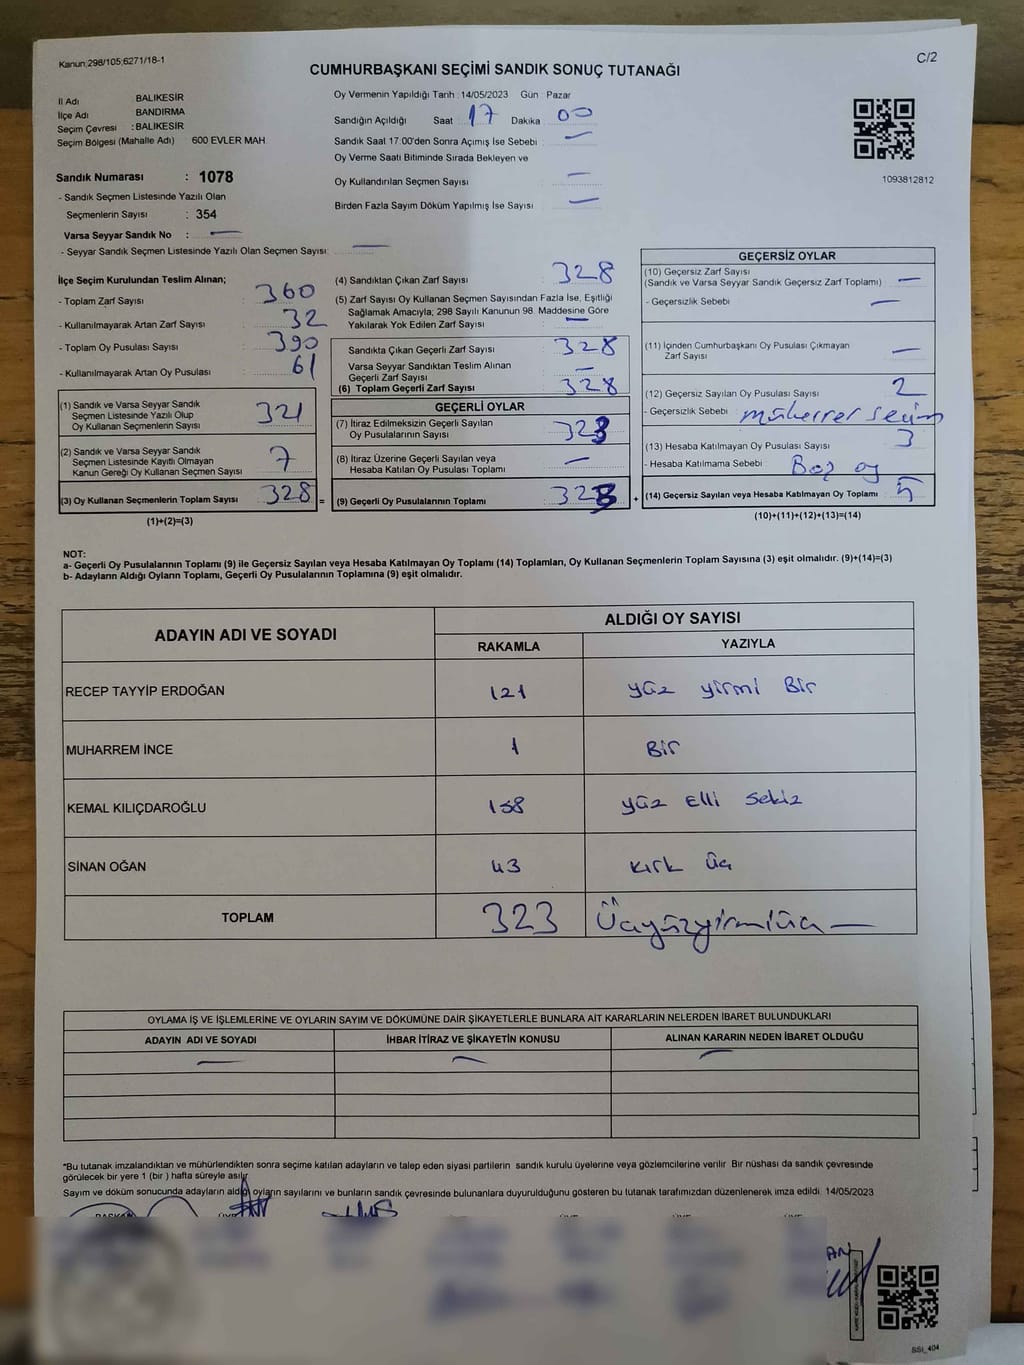 Kanun;298/105;6271/18-1
C/2
CUMHURBAŞKANI SEÇİMİ SANDIK SONUÇ TUTANAĞI
İl Adı BALIKESİR
İlçe Adı BANDIRMA
Seçim Çevresi : BALIKESİR
Seçim Bölgesi (Mahalle Adı) 600 EVLER MAH.
Sandık Numarası : 1078
- Sandık Seçmen Listesinde Yazılı Olan
Seçmenlerin Sayısı : 354
Varsa Seyyar Sandık No : —
- Seyyar Sandık Seçmen Listesinde Yazılı Olan Seçmen Sayısı: —
Oy Vermenin Yapıldığı Tarih : 14/05/2023 Gün : Pazar
Sandığın Açıldığı Saat : 17 Dakika : 00
Sandık Saat 17:00'den Sonra Açımış İse Sebebi : —
Oy Verme Saati Bitiminde Sırada Bekleyen ve
Oy Kullandırılan Seçmen Sayısı : —
Birden Fazla Sayım Döküm Yapılmış İse Sayısı : —
1093812812
İlçe Seçim Kurulundan Teslim Alınan;
- Toplam Zarf Sayısı : 360
- Kullanılmayarak Artan Zarf Sayısı : 32
- Toplam Oy Pusulası Sayısı : 390
- Kullanılmayarak Artan Oy Pusulası : 61
(1) Sandık ve Varsa Seyyar Sandık
Seçmen Listesinde Yazılı Olup
Oy Kullanan Seçmenlerin Sayısı : 321
(2) Sandık ve Varsa Seyyar Sandık
Seçmen Listesinde Kayıtlı Olmayan
Kanun Gereği Oy Kullanan Seçmen Sayısı : 7
(3) Oy Kullanan Seçmenlerin Toplam Sayısı : 328 =
(1)+(2)=(3)
(4) Sandıktan Çıkan Zarf Sayısı : 328
(5) Zarf Sayısı Oy Kullanan Seçmen Sayısından Fazla İse, Eşitliği
Sağlamak Amacıyla; 298 Sayılı Kanunun 98. Maddesine Göre
Yakılarak Yok Edilen Zarf Sayısı : —
Sandıkta Çıkan Geçerli Zarf Sayısı : 328
Varsa Seyyar Sandıktan Teslim Alınan
Geçerli Zarf Sayısı : —
(6) Toplam Geçerli Zarf Sayısı : 328
GEÇERLİ OYLAR
(7) İtiraz Edilmeksizin Geçerli Sayılan
Oy Pusulalarının Sayısı : 323
(8) İtiraz Üzerine Geçerli Sayılan veya
Hesaba Katılan Oy Pusulası Toplamı : —
(9) Geçerli Oy Pusulalarının Toplamı : 323 +
GEÇERSİZ OYLAR
(10) Geçersiz Zarf Sayısı
(Sandık ve Varsa Seyyar Sandık Geçersiz Zarf Toplamı) : —
- Geçersizlik Sebebi : —
(11) İçinden Cumhurbaşkanı Oy Pusulası Çıkmayan
Zarf Sayısı : —
(12) Geçersiz Sayılan Oy Pusulası Sayısı : 2
- Geçersizlik Sebebi : mükerrer seçim
(13) Hesaba Katılmayan Oy Pusulası Sayısı : 3
- Hesaba Katılmama Sebebi : Boş oy
(14) Geçersiz Sayılan veya Hesaba Katılmayan Oy Toplamı : 5
(10)+(11)+(12)+(13)=(14)
NOT:
a- Geçerli Oy Pusulalarının Toplamı (9) ile Geçersiz Sayılan veya Hesaba Katılmayan Oy Toplamı (14) Toplamları, Oy Kullanan Seçmenlerin Toplam Sayısına (3) eşit olmalıdır. (9)+(14)=(3)
b- Adayların Aldığı Oyların Toplamı, Geçerli Oy Pusulalarının Toplamına (9) eşit olmalıdır.
ADAYIN ADI VE SOYADI
ALDIĞI OY SAYISI
RAKAMLA YAZIYLA
RECEP TAYYİP ERDOĞAN 121 yüz yirmi Bir
MUHARREM İNCE 1 Bir
KEMAL KILIÇDAROĞLU 158 yüz Elli Sekiz
SİNAN OĞAN 43 kırk üç
TOPLAM 323 Üçyüzyirmiüç —
OYLAMA İŞ VE İŞLEMLERİNE VE OYLARIN SAYIM VE DÖKÜMÜNE DAİR ŞİKAYETLERLE BUNLARA AİT KARARLARIN NELERDEN İBARET BULUNDUKLARI
ADAYIN ADI VE SOYADI İHBAR İTİRAZ VE ŞİKAYETİN KONUSU ALINAN KARARIN NEDEN İBARET OLDUĞU
— — —
*Bu tutanak imzalandıktan ve mühürlendikten sonra seçime katılan adayların ve talep eden siyasi partilerin sandık kurulu üyelerine veya gözlemcilerine verilir. Bir nüshası da sandık çevresinde
görülecek bir yere 1 (bir) hafta süreyle asılır.
Sayım ve döküm sonucunda adayların aldığı oyların sayılarını ve bunların sandık çevresinde bulunanlara duyurulduğunu gösteren bu tutanak tarafımızdan düzenlenerek imza edildi. 14/05/2023
BAŞKAN
SSI_404